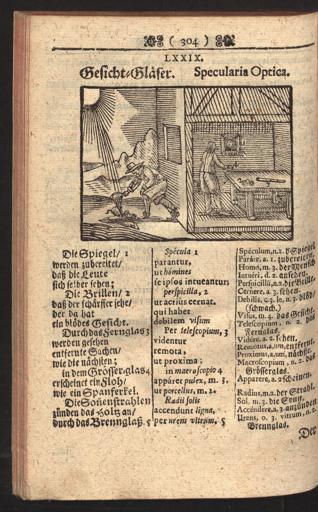 ( 304 )
LXXIX.
Gesicht-Gläser. Specularia Optica.
Die Spiegel/ 1
werden zubereitet/
daß die Leute
sich selber sehen;
Die Brillen/ 2
daß der schärffer sehe/
der da hat
ein blödes Gesicht.
Durch das Fernglas 3
werden gesehen
entfernte Sachen/
wie die nächsten;
in dem Grösserglas 4
erscheinet ein Floh/
wie ein Spanferkel.
Die Sonenstrahlen
zünden das Holtz an/
durch das Brennglas. 5
Specula 1
parantur,
ut homines
se ipsos intueantur:
perspicilia, 2
ut acrius cernat,
qui habet
debilem visum
Per telescopium, 3
videntur
remota,
ut proxima:
in macroscopio 4
apparet pulex, m. 3.
ut porcellus, m. 2.
Radii solis
accendunt ligna,
per urens vitrum. 5
Spéculum, n. 2. der Spiegel
Paráre, a. 1. zubereiten.
Homo, m. 3. der Mensch
Intuéri, d. 2. ansehen.
Perspicillū, n. 2. die Brille.
Cérnere, a. 3. sehen.
Debilis, c. 3. le, n. 3. blöd/
(schwach.)
Visus, m. 4. das Gesicht.
Telescopium, n. 2. das
Fernglas.
Vidére, a. 2. sehen.
Remotus, a, um, entfernt.
Proximus, a, um, nächst.
Macroscopium, n. 2. das
Grösserglas.
Apparere, a. 2. scheinen.
Radius, m. 2. der Strahl.
Sol, m. 3. die Sonn.
Accéndere, a. 3. anzünden
Urens, o. 3. vitrum, n. 2.
Brennglas.
Der